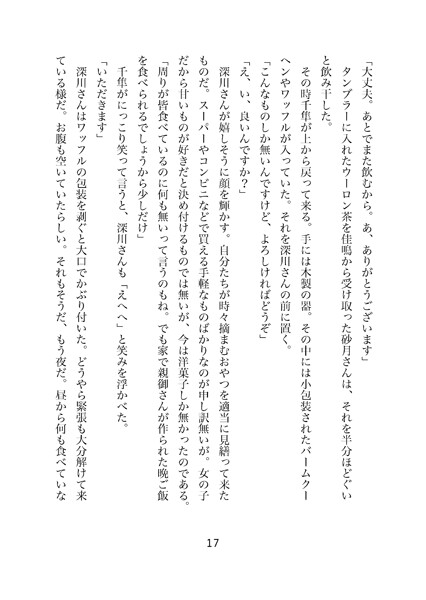 「大丈夫。あとでまた飲むから。あ、ありがとうございます」
タンブラーに入れたウーロン茶を佳鳴から受け取った砂月さんは、それを半分ほどぐい
と飲み干した。
その時千隼が上から戻って来る。手には木製の器。その中には小包装されたバームクー
ヘンやワッフルが入っていた。それを深川さんの前に置く。
「こんなものしか無いんですけど、よろしければどうぞ」
「え、い、良いんですか？」
深川さんが嬉しそうに顔を輝かす。自分たちが時々摘まむおやつを適当に見繕って来た
ものだ。スーパーやコンビニなどで買える手軽なものばかりなのが申し訳無いが。女の子
だから甘いものが好きだと決め付けるものでは無いが、今は洋菓子しか無かったのである。
「周りが皆食べているのに何も無いって言うのもね。でも家で親御さんが作られた晩ご飯
を食べられるでしょうから少しだけ」
千隼がにっこり笑って言うと、深川さんも「えへへ」と笑みを浮かべた。
「いただきます」
深川さんはワッフルの包装を剥ぐと大口でかぶり付いた。どうやら緊張も大分解けて来
ている様だ。お腹も空いていたらしい。それもそうだ、もう夜だ。昼から何も食べていな
17